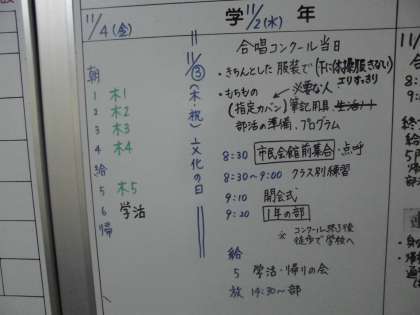 学 年
11/4(金)
朝
1 木1
2 木2
3 木3
4 木4
給
5 木5
6 学活
帰
11/③(木・祝) 文化の日
11/2(水)
合唱コンクール当日
・きちんとした服装で(下に体操服きない)
エリすっきり
・もちもの ← 必要な人
(指定カバン)筆記用具
部活の準備、プログラム
8:30 市民会館前集合・点呼
8:30~9:00 クラス別練習
9:10 開会式
9:20 1年の部
※ コンクール終了後
徒歩で学校へ
給
5 学活・帰りの会
放 14:30~部